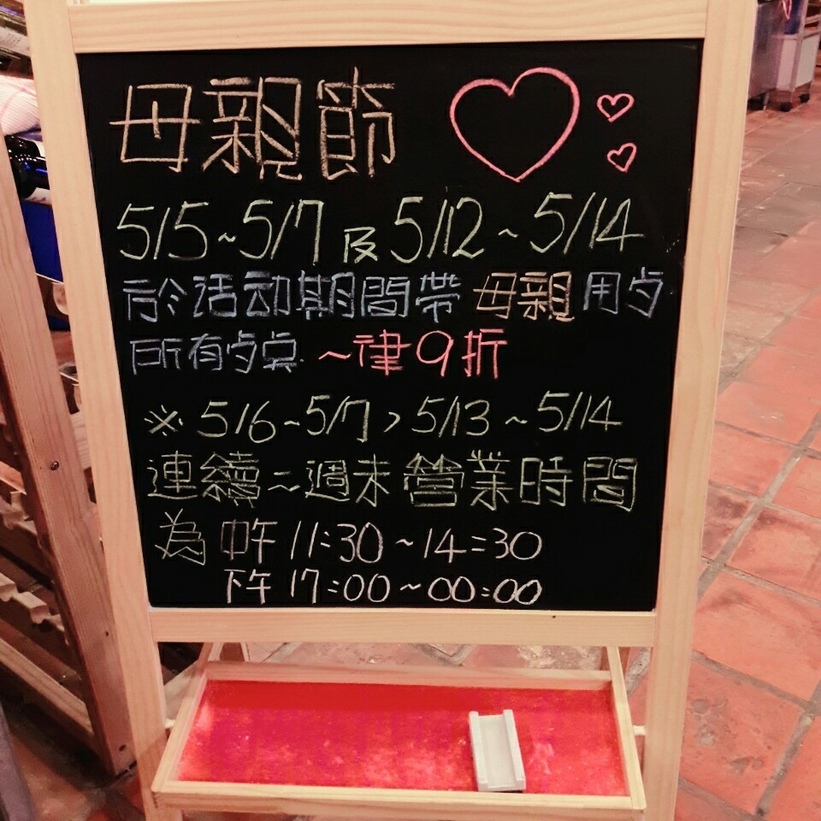 母親節
5/5~5/7 及 5/12 ~ 5/14
於活动期間帶母親用歺
所有歺桌 ~律9折
※ 5/6~5/7 , 5/13 ~ 5/14
連續二週末營業時間
為 中午 11:30~14:30
下午 17:00~00:00